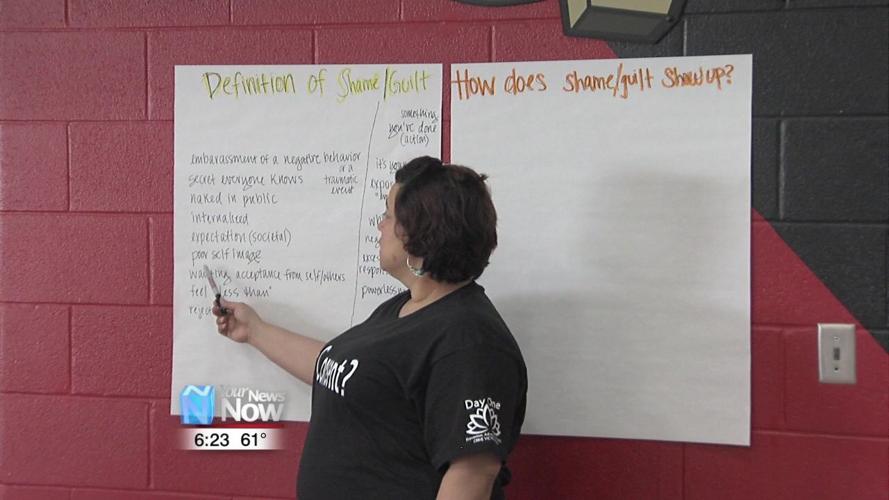 Definition of Shame/Guilt
something
you've done
(action)
embarassment of a negative behavior
or a
traumatic
event
secret everyone knows
naked in public
internalized
expectation (societal)
poor self image
wanting acceptance from self/others
feel "less than"
it's
How does shame/guilt show up?
Consent?
Day One
Your News
Now
6:23 61°